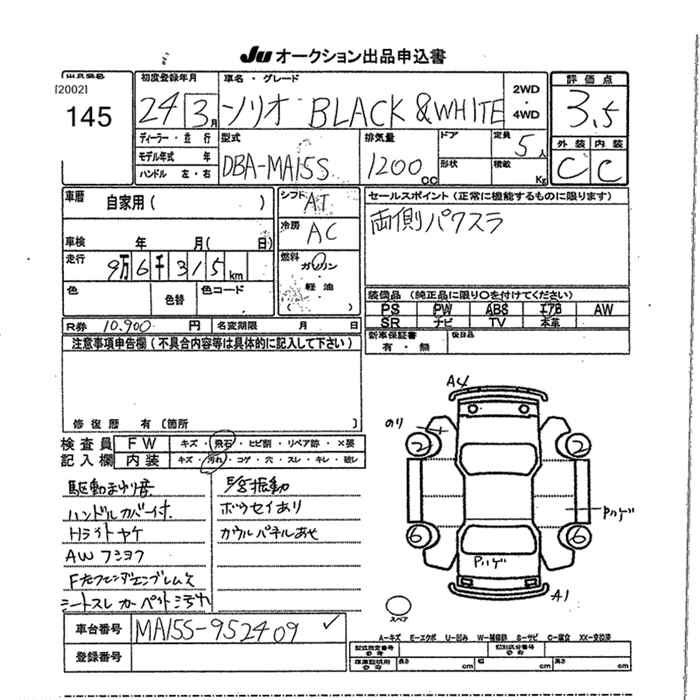 JU オークション出品申込書
[2002]
145
初度登録年月
24 3月
車名・グレード
ソリオ BLACK & WHITE
2WD
・
4WD
評価点
3.5
外装 内装
C C
ディーラー・並行
モデル年式 年
ハンドル 左・右
型式
DBA-MA15S
排気量
1200 CC
ドア
形状
定員
5人
積載
Kg
車歴
自家用 ( )
シフト
AT
車検 年 月( 日)
冷房
AC
走行
9万6千315km
燃料
ガソリン
軽油
( )
色
色替
色コード
R券 10,900 円
名変期限 月 日
セールスポイント (正常に機能するものに限ります)
両側パワスラ
装備品 (純正品に限り○を付けてください)
PS PW ABS エアB AW
SR ナビ TV 本革
新車保証書
有・無
後日品
注意事項申告欄 (不具合内容等は具体的に記入して下さい)
修復歴 有 [箇所 ]
検査員
記入欄
FW キズ・飛石・ヒビ割・リペア跡・×要
内装 キズ・汚れ・コゲ・穴・スレ・キレ・破レ
駆動まわり音
ハンドルカバー付
Hライトヤケ
AWフショク
シートスレ カーペット汚れ
振動
ボウセイあり
カウルパネルあせ
A4
のり
2
2
6
6
Pハゲ
Pハゲ
A1
スペア
車台番号
MA15S-952409
登録番号
A-キズ E-エクボ U-凹み W-補修跡 S-サビ C-腐食 XX-交換済
型式指定番号
類別区分番号
長さ cm
幅 cm
高さ cm